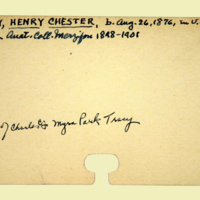 , HENRY CHESTER, b. Aug. 26, 1876, in U.
Anat. Coll. Merzifon 1898-1901
of Charles & Myra Park Tracy